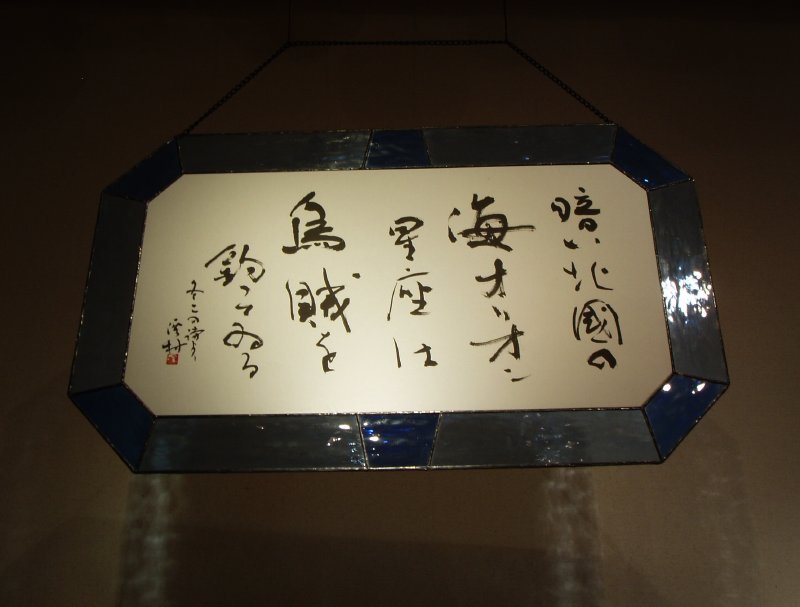 暗い北國の
海オリオン
星座は
烏賊を
釣つてゐる